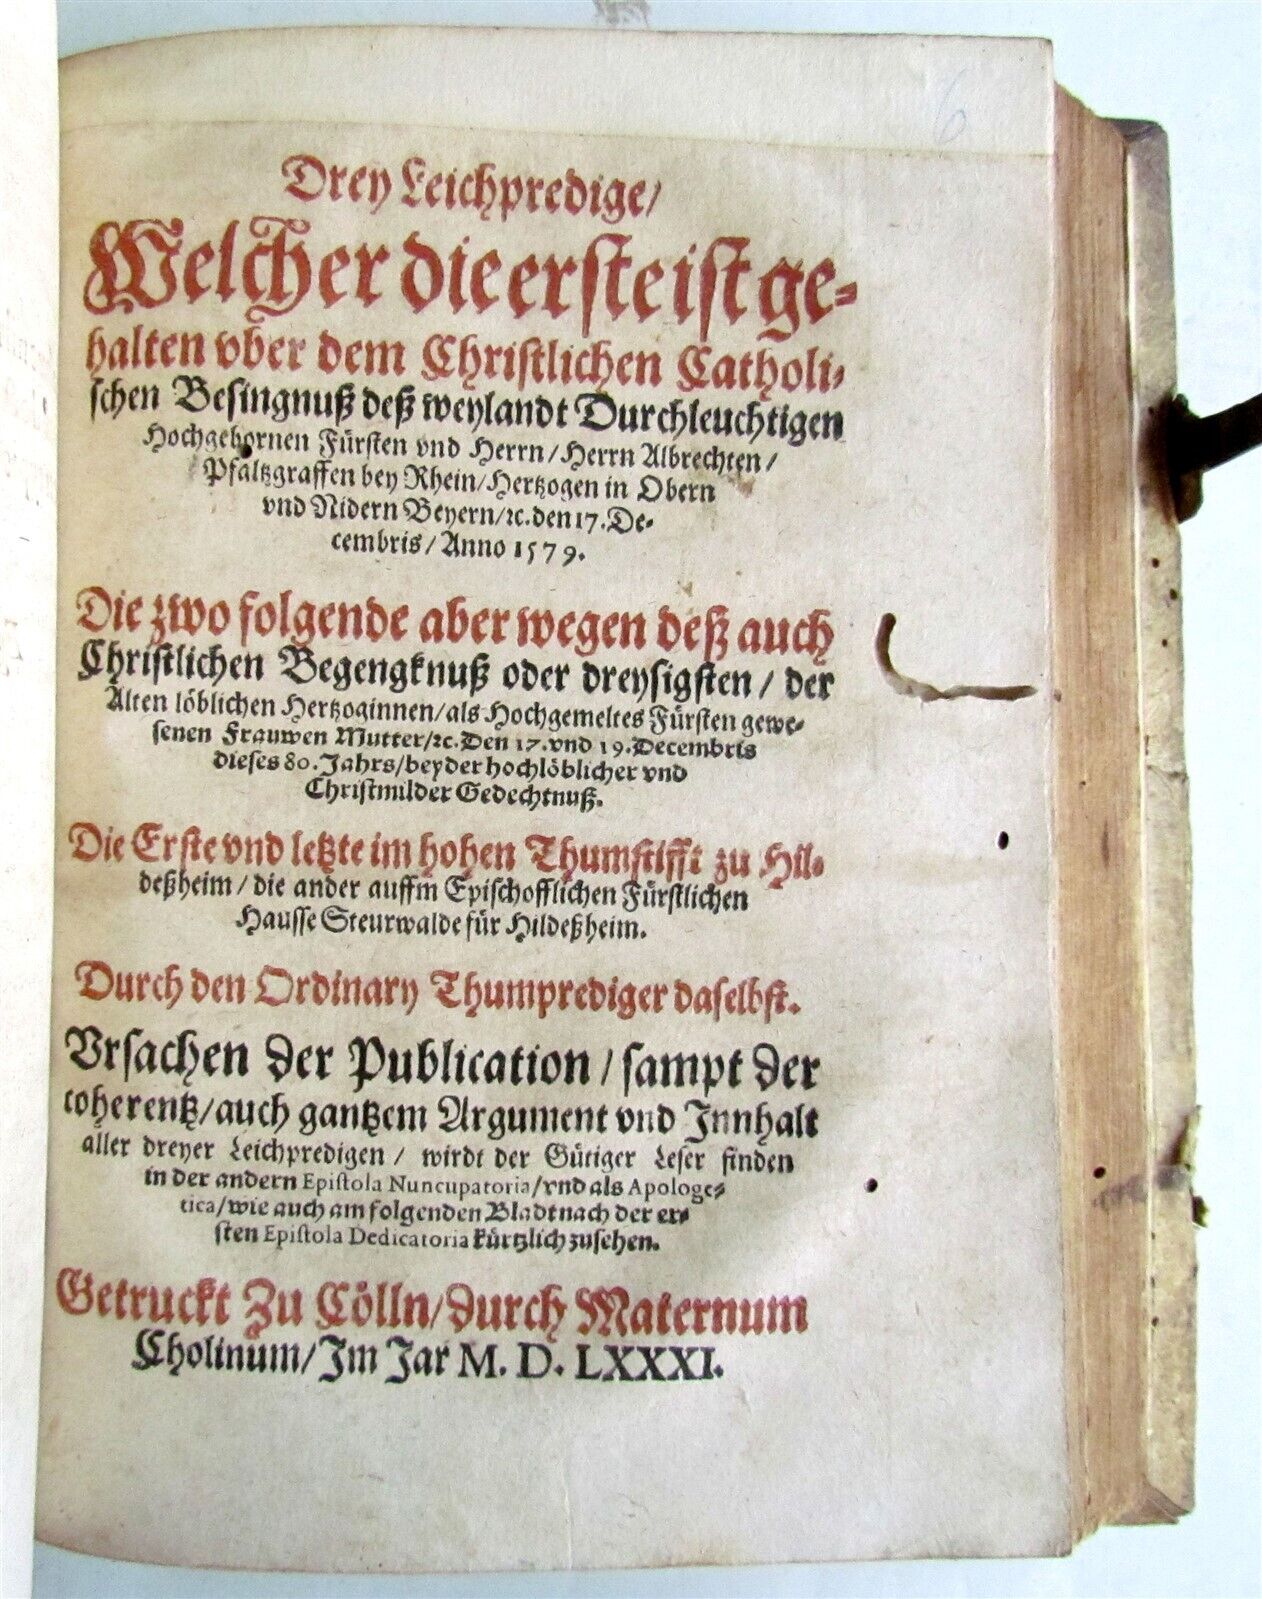 6
Drey Leichpredige/
Welcher die erste ist ge-
halten vber dem Christlichen Catholi-
schen Besingnuß deß weylandt Durchleuchtigen
Hochgebornen Fürsten vnd Herrn/Herrn Albrechten/
Pfaltzgraffen bey Rhein/Hertzogen in Obern
vnd Nidern Beyern/ꝛc. den 17. De-
cembris/Anno 1579.
Die zwo folgende aber wegen deß auch
Christlichen Begengknuß oder dreysigsten/der
Alten löblichen Hertzoginnen/als Hochgemeltes Fürsten gewe-
senen Frauwen Mutter/ꝛc. Den 17. vnd 19. Decembris
dieses 80. Jahrs/beyder hochlöblicher vnd
Christmilder Gedechtnuß.
Die Erste vnd letzte im hohen Thumstifft zu Hil-
deßheim/die ander auffm Epischofflichen Fürstlichen
Hausse Steurwalde für Hildeßheim.
Durch den Ordinary Thumprediger daselbst.
Vrsachen der Publication/sampt der
coherentz/auch gantzem Argument vnd Innhalt
aller dreyer Leichpredigen/ wirdt der Gütiger Leser finden
in der andern Epistola Nuncupatoria/vnd als Apologe-
tica/wie auch am folgenden Bladt nach der er-
sten Epistola Dedicatoria kürtzlich zusehen.
Getruckt Zu Cölln/durch Maternum
Cholinum/Im Jar M. D. LXXXI.